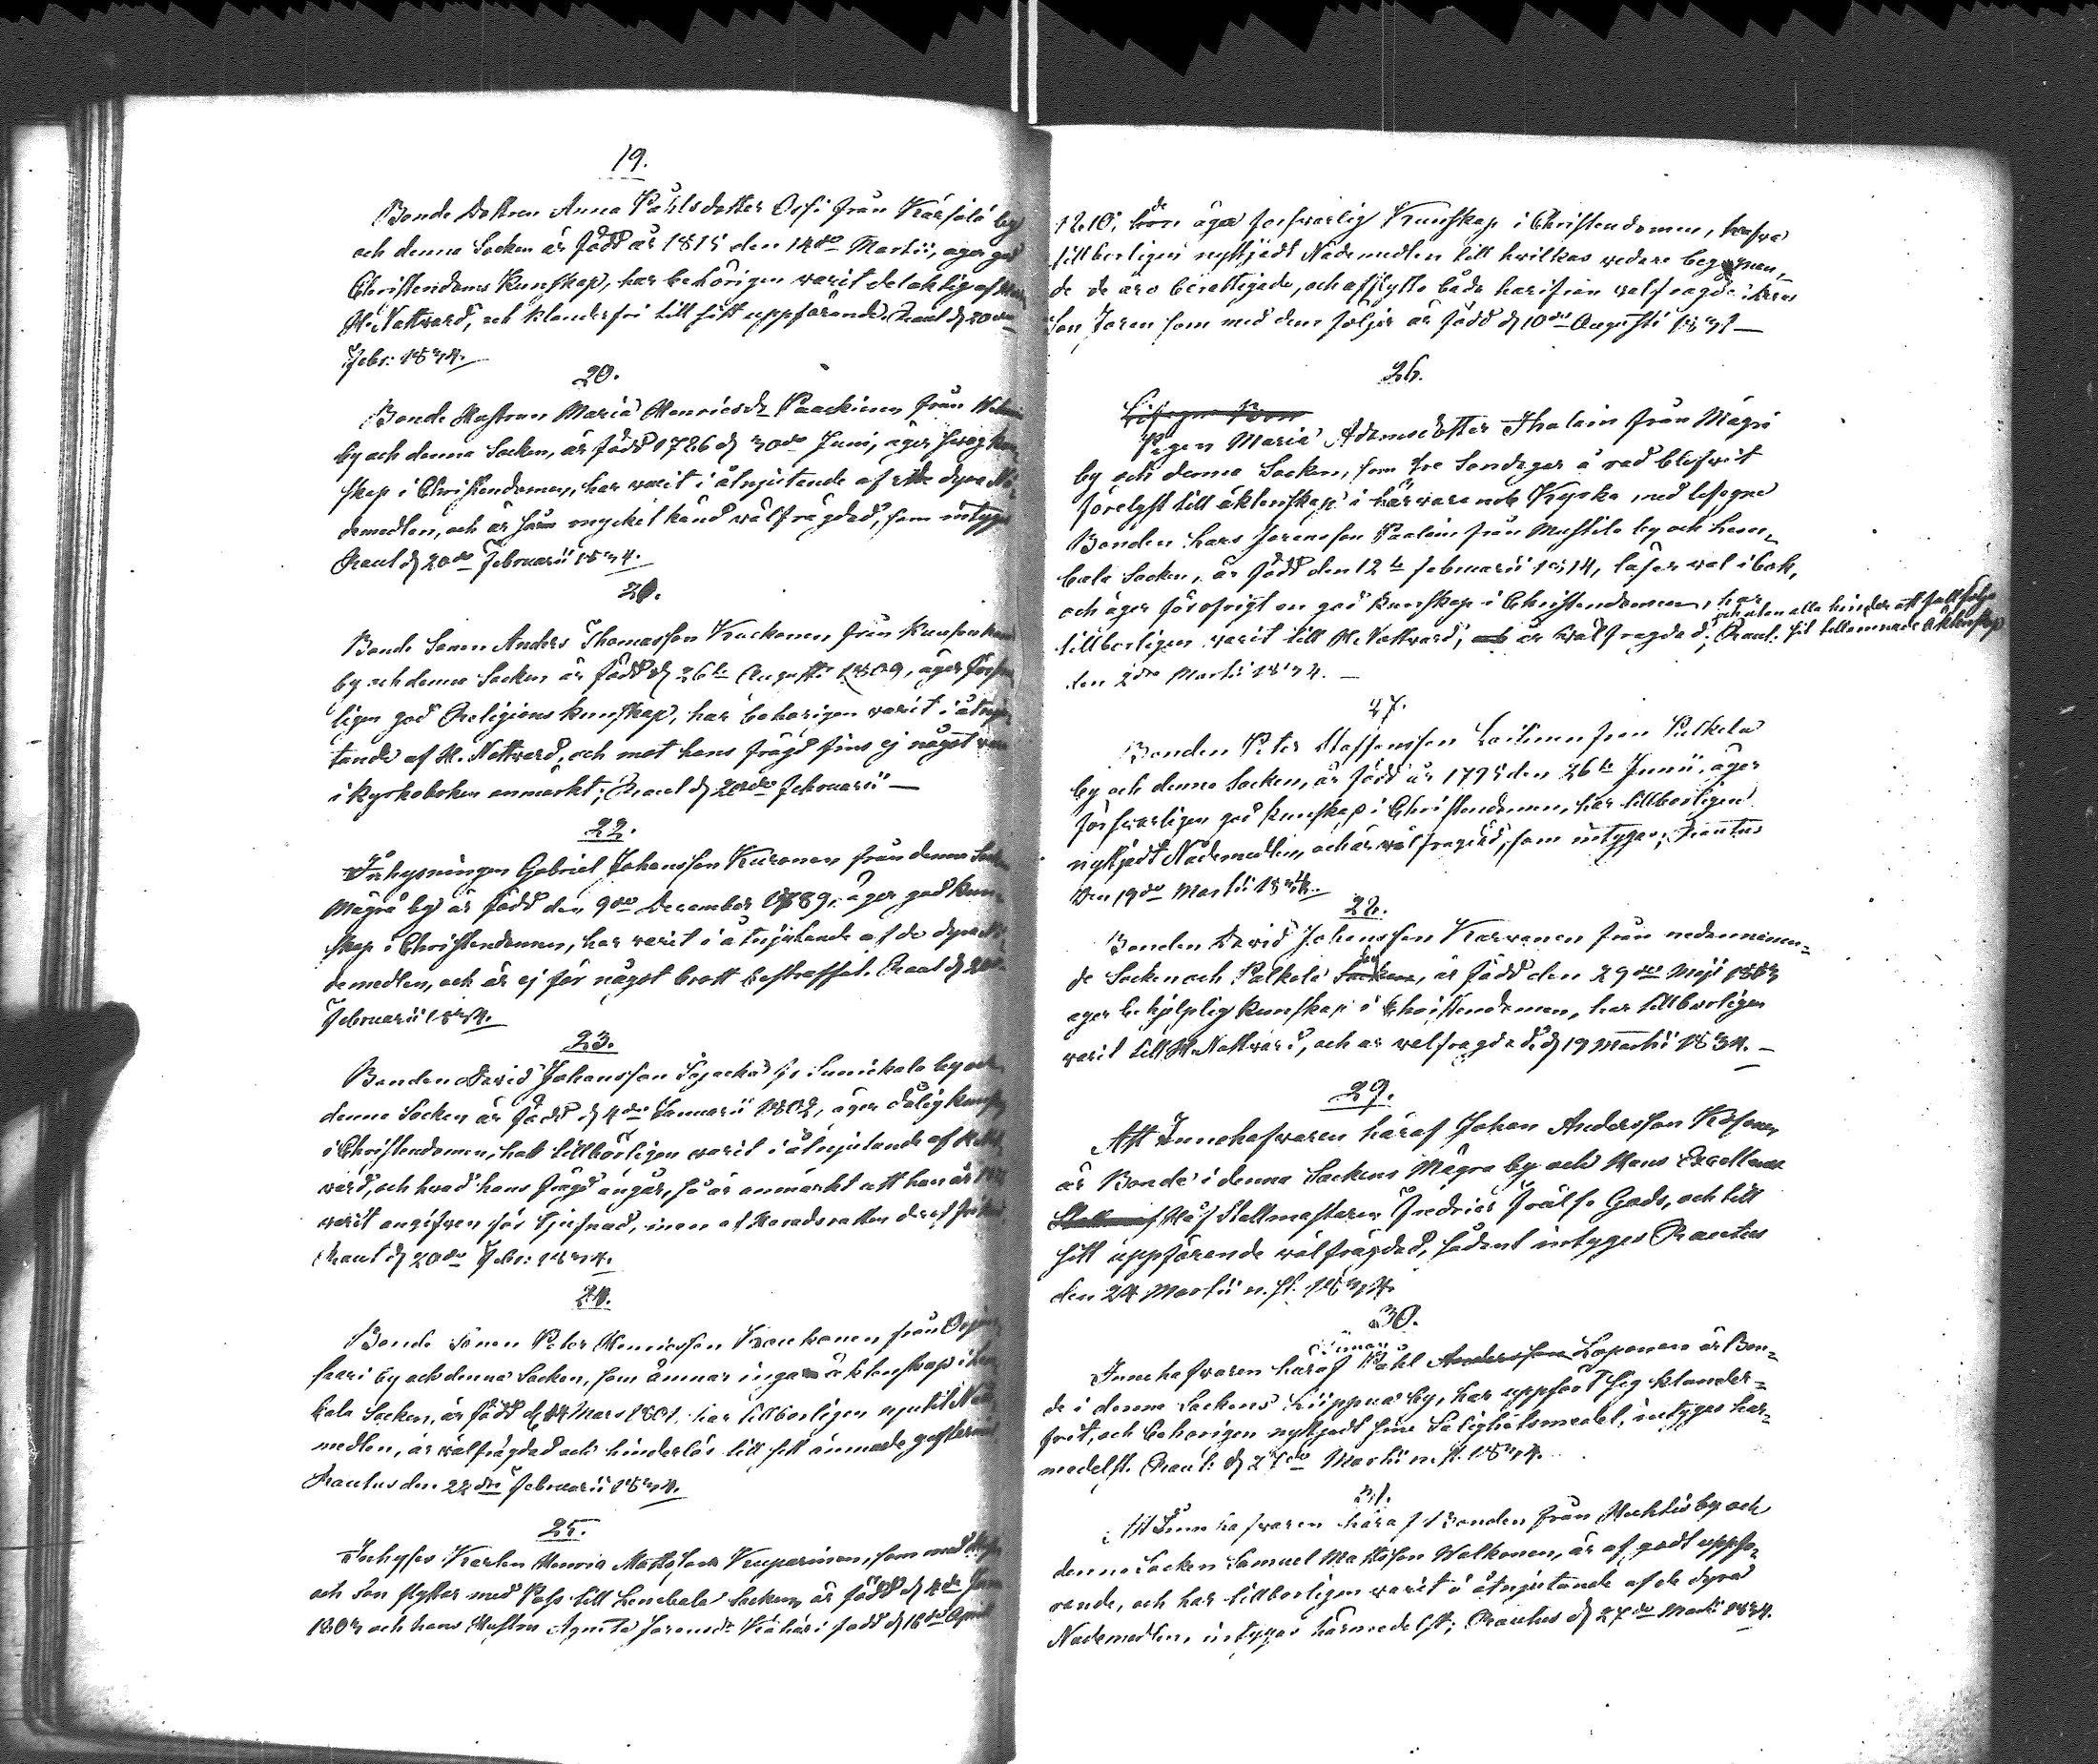 19.
Bonde Dottren Anna Påhlsdotter Orsi från Kärsälä by
och denna Socken är född år 1815 den 14de Martii, äger god
Christendoms Kunskap, har behörigen varit delaktig af
H. Nattvard, och klanderfri till sitt uppförande. Raut d 20de
Febr: 1834.
20.
Bonde Hustrun Maria Henricsdr Paackinen från
by och denna Socken, är född 1786 d 30de Juni, äger svag kun-
skap i Christendomen, har varit i åtnjutande af de dyra Nå-
demedlen, och är såsom mycket känd välfrägdad, som intygas
Raut d 20de Februarii 1834.
21.
Bonde Sonen Anders Thomasson Kuckonen från
by och denna Socken är född d 26te Augusti 1809, äger försvar
ligen god Religions kunskap, har behörigen varit i åtnju-
tande af H. Nattvard, och mot hans frägd fins ej något
i kyrkoboken anmärkt; Raut d 20de Februarii —
22.
Inhysningen Gabriel Johansson Kuronen från denna Socken
Mägrä by är född den 9de December 1789, äger god kun-
skap i Christendomen, har varit i åtnjutande af de dyra Nå-
demedlen, och är ej för något brott bestraffad. Raut d 20de
Februarii 1834.
23.
Bonden David Johansson fr Sunikala by och
denna Socken är född d 4de Januarii 1802, äger dålig kunskap
i Christendomen, hatt tillbörligen varit i åtnjutande af H. Natt
vard, och hvad hans frägd angår, så är anmärkt att han är
varit angifven för Tjufnad, men af Häradsrätten deraf
Raut d 20de Febr: 1834.
24.
Bonde Sonen Peter Henricsson Kaukonen från
saari by och denna Socken, som ämnar inga äktenskap i
bala Socken, är född d Mars 1801. har tillbörligen njutit Nåd
medlen, är välfrägdad och hinderlös till sitt ämnade giftermål
Rautus den 22dre Februarii 1834.
25.
Inhyses Karlen Henric Mattsson Kuparinen, som med
och Son flyttar med Pass till Lembala Socken, är född d 4de
1803 och hans Hustru Agneta Jöransdr Kähäri född d 18de April
1810; de äga försvarlig Kunskap i Christendomen, hafva
tillbörligen nyttjadt Nådemedlen till hvilkas vidare begagnan-
de de äro berättigade, och afflytta både härifrån välfrägde; deras
Son Jöran som med dem följer är född d 10de Augusti 1831 —
26.
Pigen Maria Adamsdotter Ihalain från Mägrä
by och denna Socken, som tre Söndagar å rad blifvit
förelyst till äktenskap i härvarande Kyrka med ledigne
Bonden Lars Jöransson Paalain från Mustila by och Lem-
bala Socken, är född den 12te februarii 1814, läser väl i bok,
och äger för öfrigt en god kunskap i Christendomen, har
tillbörligen varit till H. Nattvard; är välfrägdad, och utan alla hinder att fullfölja sit tillämnade äktenskap Raut.
den 2dra Martii 1834. —
27.
Bonden Peter Staffansson Laitinen från Palkela
by och denna Socken, är född år 1775 den 26te Junii, äger
försvarligen god kunskap i Christendomen, har tillbörligen
nyttjadt Nådemedlen, och är välfrägdad, som intygas; Rautus
den 19de Martii 1834.
28.
Bonden David Johansson Karvanen från nedannämn-
de Socken och Palkela by, är född den 29de Maji 1803
äger behjelplig kunskap i Christendomen, har tillbörligen
varit till H. Nattvard, och är välfrägdad; d 19 Martii 1834. —
29.
Att Innehafvaren häraf Johan Andersson Kosonen
är Bonde i denna Sockens Mägrä by och Hans Excellens
Hof Stallmästaren Fredrics Frälse Gods, och till
sitt uppförande välfrägdad, sådant intygas Rautus
den 24 Martii n. st. 1834.
30.
Simons
Innehafvaren häraf Påhl Andersson Loponen är Bon-
de i denna Sockens Liippua by, har uppfört sig klander-
fritt, och behörigen nyttjadt sine Salighetsmedel, intygas här-
medelst. Raut: d 27de Martii n. st. 1834.
31.
Att Innehafvaren häraf Bonden från Huhtis by och
denna Socken Samuel Mattsson Valkonen, är af godt uppfö-
rande, och har tillbörligen varit i åtnjutande af de dyra
Nådemedlen, intygas härmedelst; Rautus d 27de Marti 1834.